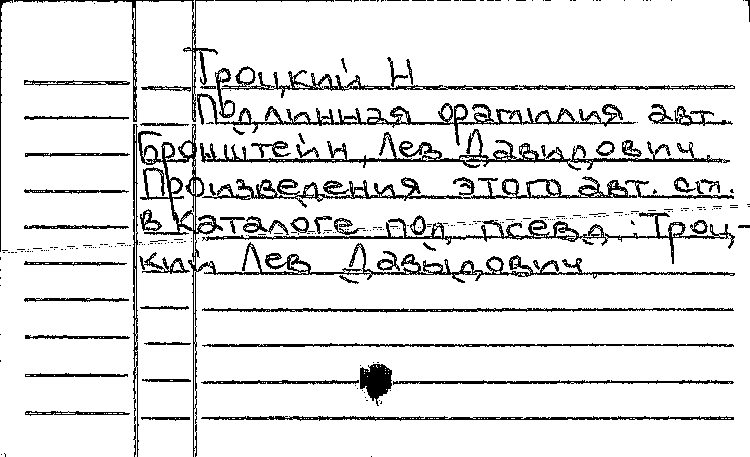 Троцкий Н
Подлинная фамилия авт.
Бронштейн, Лев Давидович.
Произведения этого авт. см.
в каталоге под псевд.: Троц-
кий Лев Давыдович.